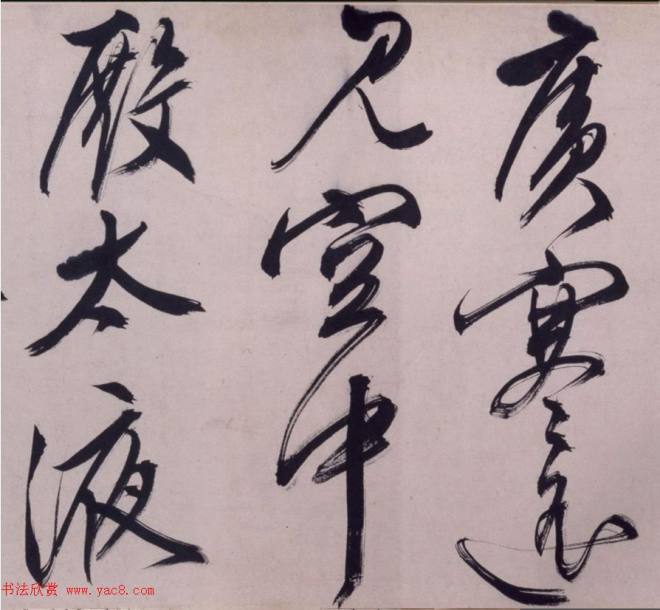 廣寒遠
見空中
殿太液
书法欣赏 www.yac8.com